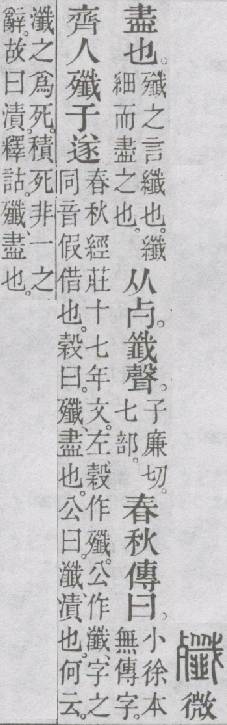 殲微
盡也。殲之言纖也。纖細而盡之也。从歺。韱聲。子廉切。七部。春秋傳曰。小徐本無傳字。
齊人殲于遂。春秋經莊十七年文。左、穀作殲。公作瀸。字之同音假借也。穀曰。殲、盡也。公曰。瀸、漬也。何云。
瀸之爲死。積死非一之辭。故曰漬。釋詁。殲、盡也。